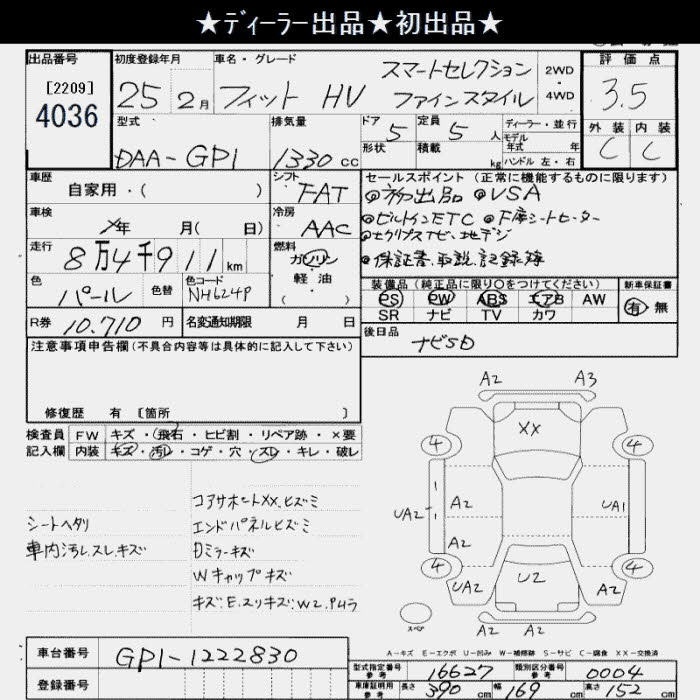 ★ディーラー出品★初出品★
出品番号 初度登録年月 車名・グレード 評価点
[2209]
4036
25 2月 フィット HV スマートセレクション 2WD
ファインスタイル 4WD
3.5
型式 排気量 ドア 定員 ディーラー・並行 外装 内装
DAA-GP1 1330 cc 5 5 人 モデル年式 年 C C
形状 積載 kg ハンドル 左・右
車歴 シフト セールスポイント (正常に機能するものに限ります)
自家用・( ) FAT ◎初出品 ◎VSA
車検 年 月( 日) 冷房 AAC ◎ビルトインETC ◎下席シートヒーター
走行 燃料 ◎セクリプスナビ、地デジ
8万4千911 km ガソリン ◎保証書、取説、記録簿
軽油
( )
色 色替 色コード
パール NH624P
装備品 (純正品に限り○をつけてください) 新車保証書
PS PW ABS エアB AW 有・無
SR ナビ TV カワ
R券 10.710 円 名変通知期限 月 日
後日品
ナビSD
注意事項申告欄 (不具合内容等は具体的に記入して下さい)
修復歴 有 [箇所 ]
検査員 FW キズ・飛石・ヒビ割・リペア跡・×要
記入欄 内装 キズ・汚レ・コゲ・穴・スレ・キレ・破レ
コアサポートXX.ヒズミ
シートヘタリ エンドパネルヒズミ
車内汚レ.スレ.キズ 刀ミラーキズ
Wキャップキズ
キズ:E.スリキズ:W2.Pムラ
A2 A3
XX
4 4
1
UA2 - 1 A2 UA1
A2
4 4
UA2 U2 A2
A2 A2
スペア
A-キズ E-エクボ U-凹み W-補修跡 S-サビ C-腐食 XX-交換済
車台番号 GP1-1222830
登録番号
型式指定番号 参考 16627 類別区分番号 参考 0004
車庫証明用 参考 長さ 390 cm 幅 169 cm 高さ 152 cm